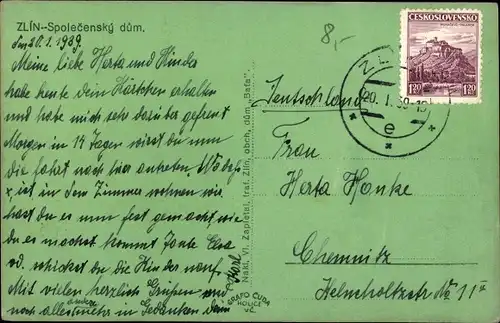 ZLÍN--Společenský dům.
Zlín 20.1.1939.
Meine liebe Herta und Kinder
habe heute dein Kärtchen erhalten
und habe mich sehr darüber gefreut
Morgen in 14 Tagen wirst du nun
die fahrt nach hier antreten.
ist in den Zimmer wohnen wie
hast du es nun fest gemacht, wie
du es machst kommt Tante Elsa
od. schickst du die Kinder nauf.
Mit vielen herzlich Grüßen und
noch allest mehr in Gedanken dein
andere
Karl
Nákl. Vl. Zapletal, traf. Zlín, obch. dům „Baťa".
GRAFO ČUDA
HOLICE
8,-
ČESKOSLOVENSKO
1·20 1·20
ZLÍN
20. I. 39
e
Deutschland
Frau
Herta Honke
Chemnitz
Helmholtzstr. № 11 II